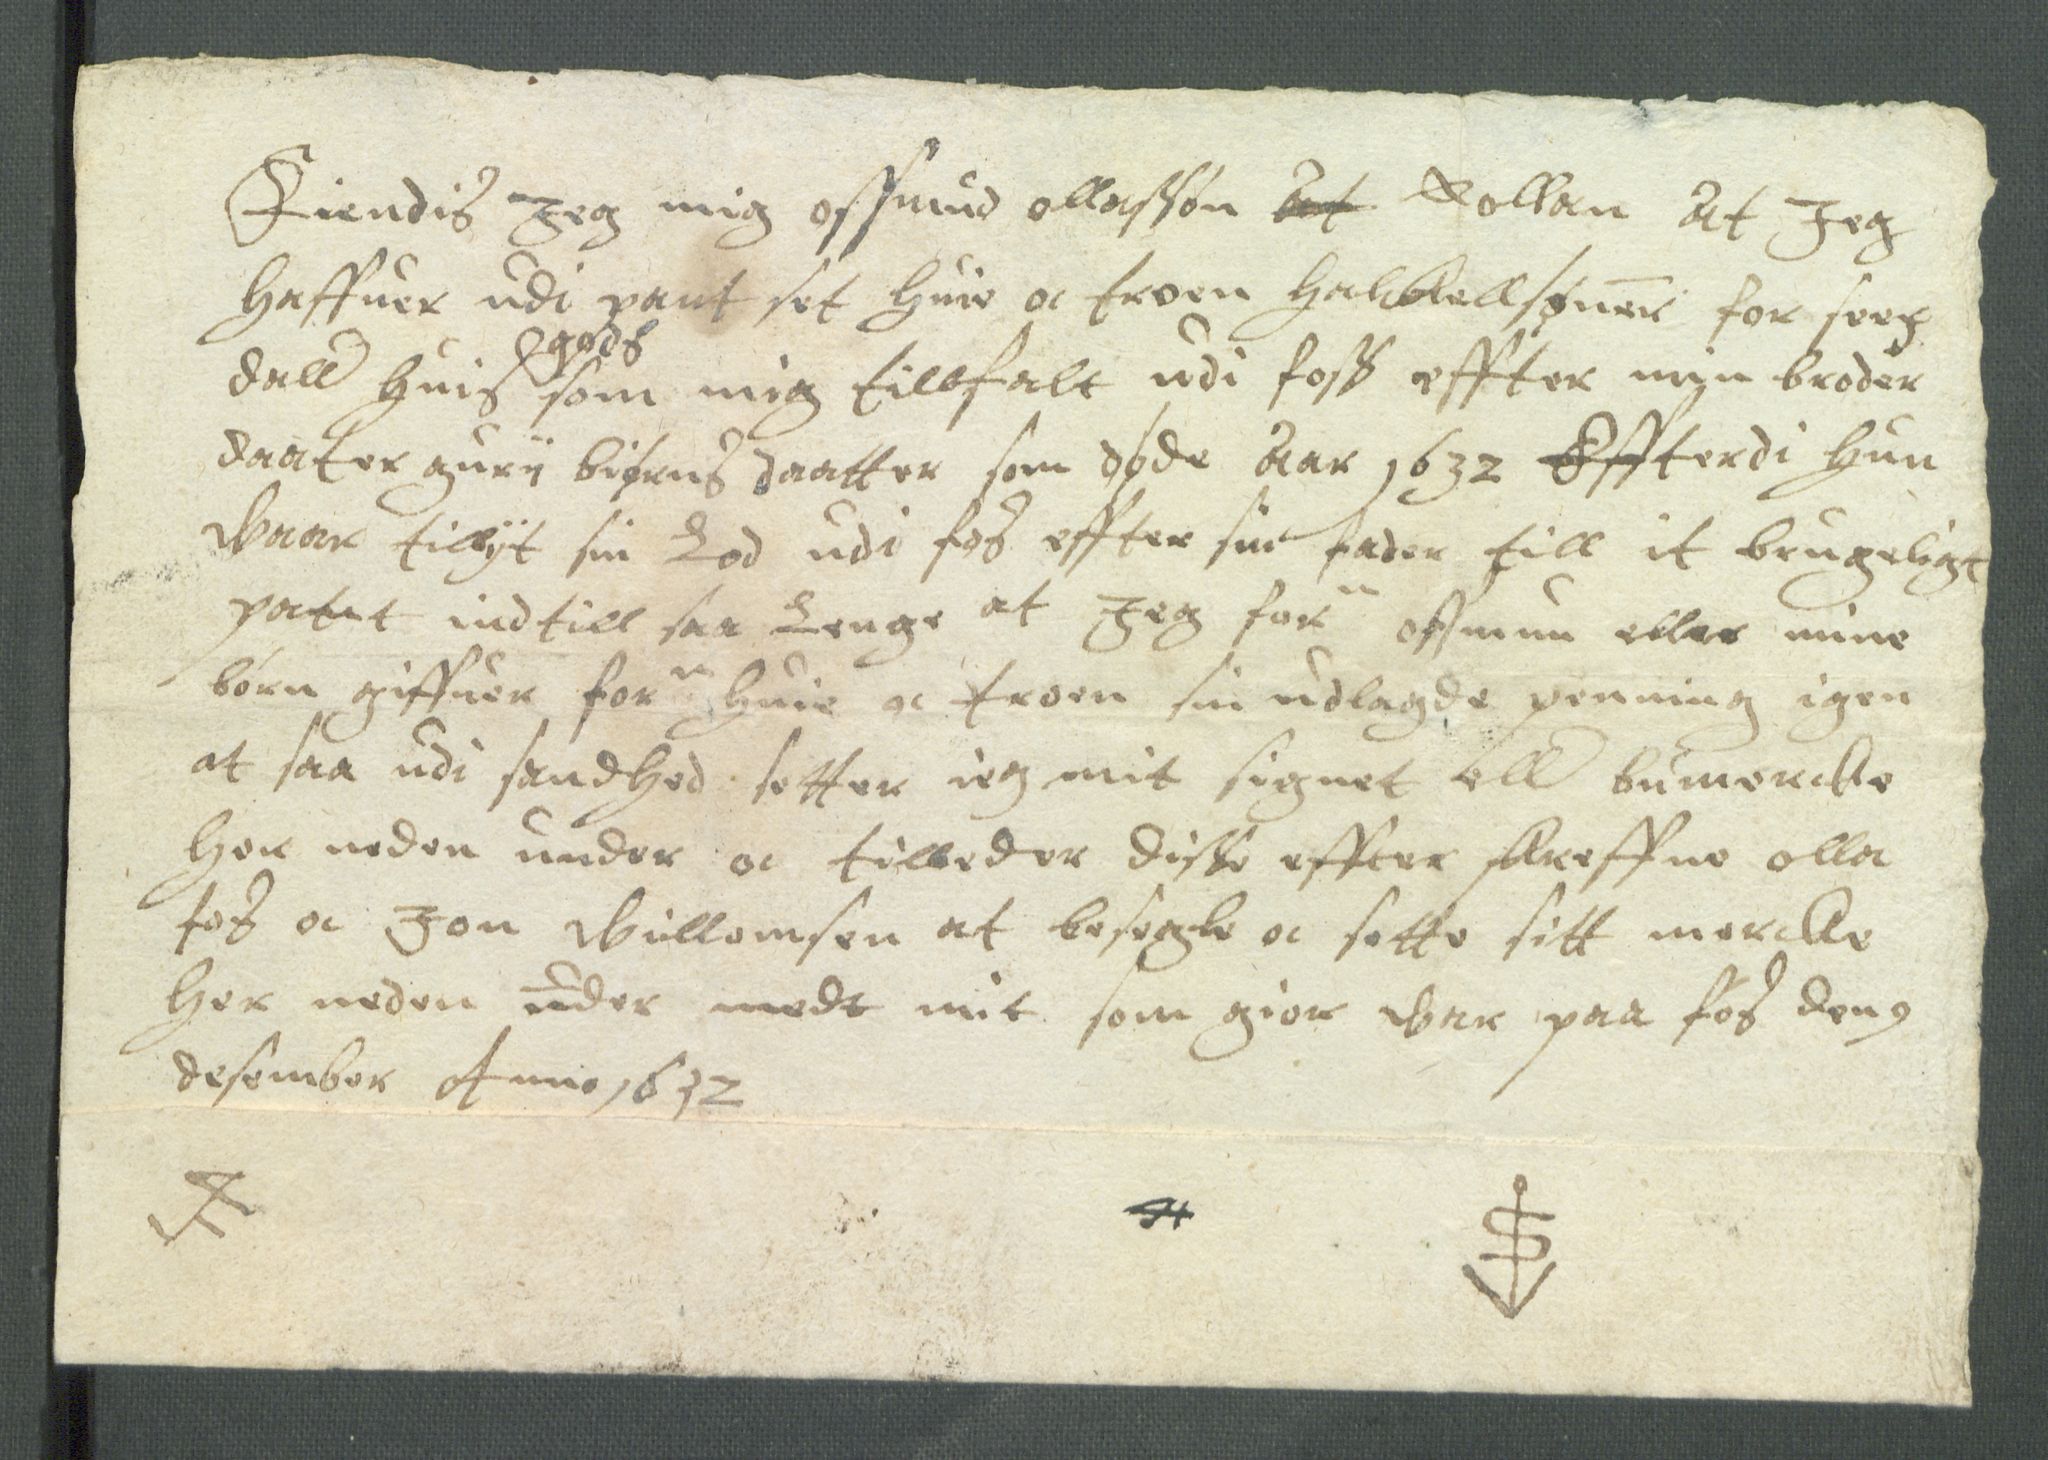 Kiendis Jeg mig ossmud ollasson At Rollan At Jeg
Haffuer udi pant set Huie oc troen Halkellsøner for sex
dall Huis gods som mig tillfalt udi foss effter min broder
daater gurÿ biørns daatter som døde Aar 1632 Effterdi Hun
Waar tillÿt sin Lod udi fos effter sin fader till it brugeligt
patnt indtill saa Lenge at Jeg forn osmun eller mine
børn giffuer forn Huie oc troen sin udlagde penning igen
at saa udi sandHed setter ieg mit signet ell bumercke
Her neden under oc tilbeder disse effter skreffne olla
fos oc Jon Willomsen at besegle oc sette sitt mercke
Her neden uder medt mit som giør war paa fos den 9
desember Anno 1632